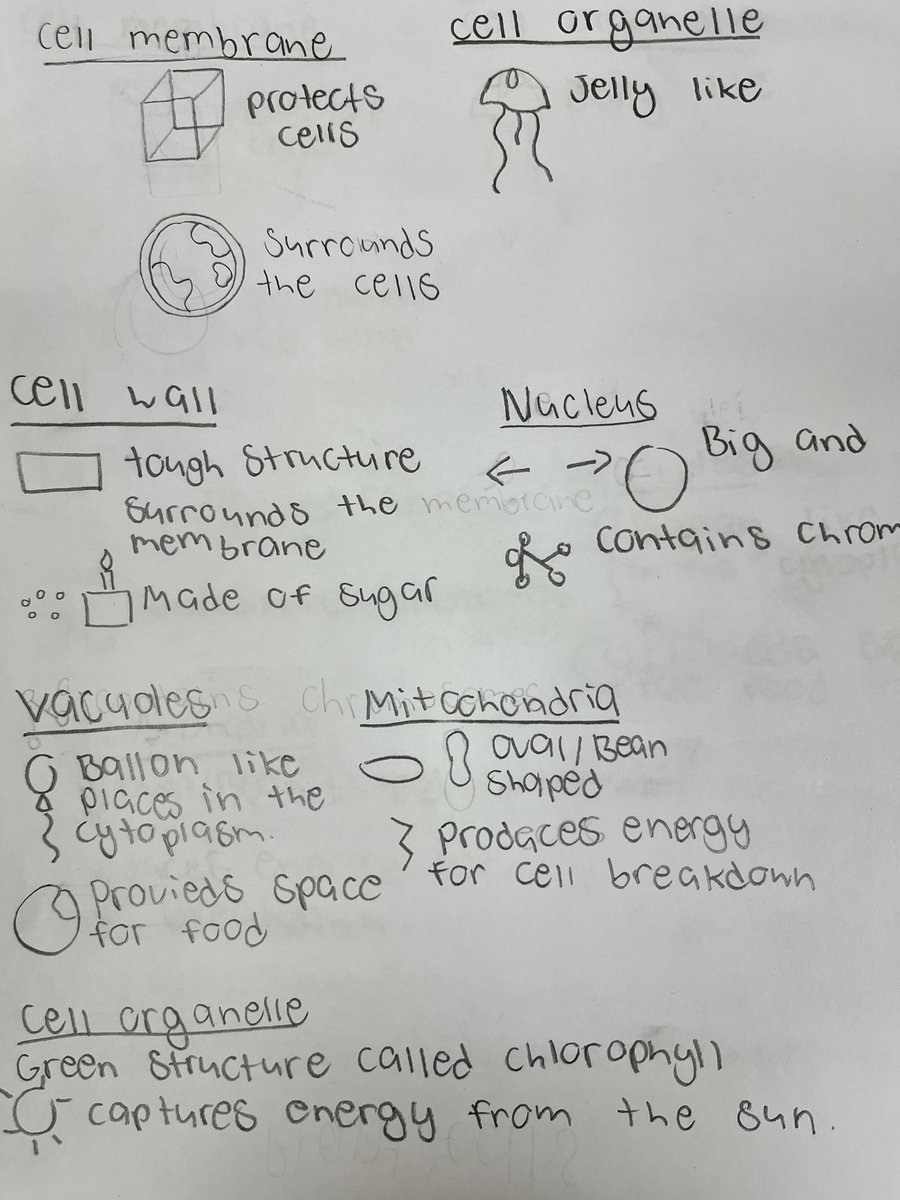 cell membrane
protects
cells
Surrounds
the cells
cell organelle
Jelly like
cell wall
tough structure
surrounds the membrane
membrane
Made of sugar
Nacleus
Big and
contains chrom
Vacuoles
Ballon like
places in the
cytoplasm.
Provieds space
for food
Mitochondria
oval/Bean
shaped
prodaces energy
for cell breakdown
cell organelle
Green structure called chlorophyll
captures energy from the sun.